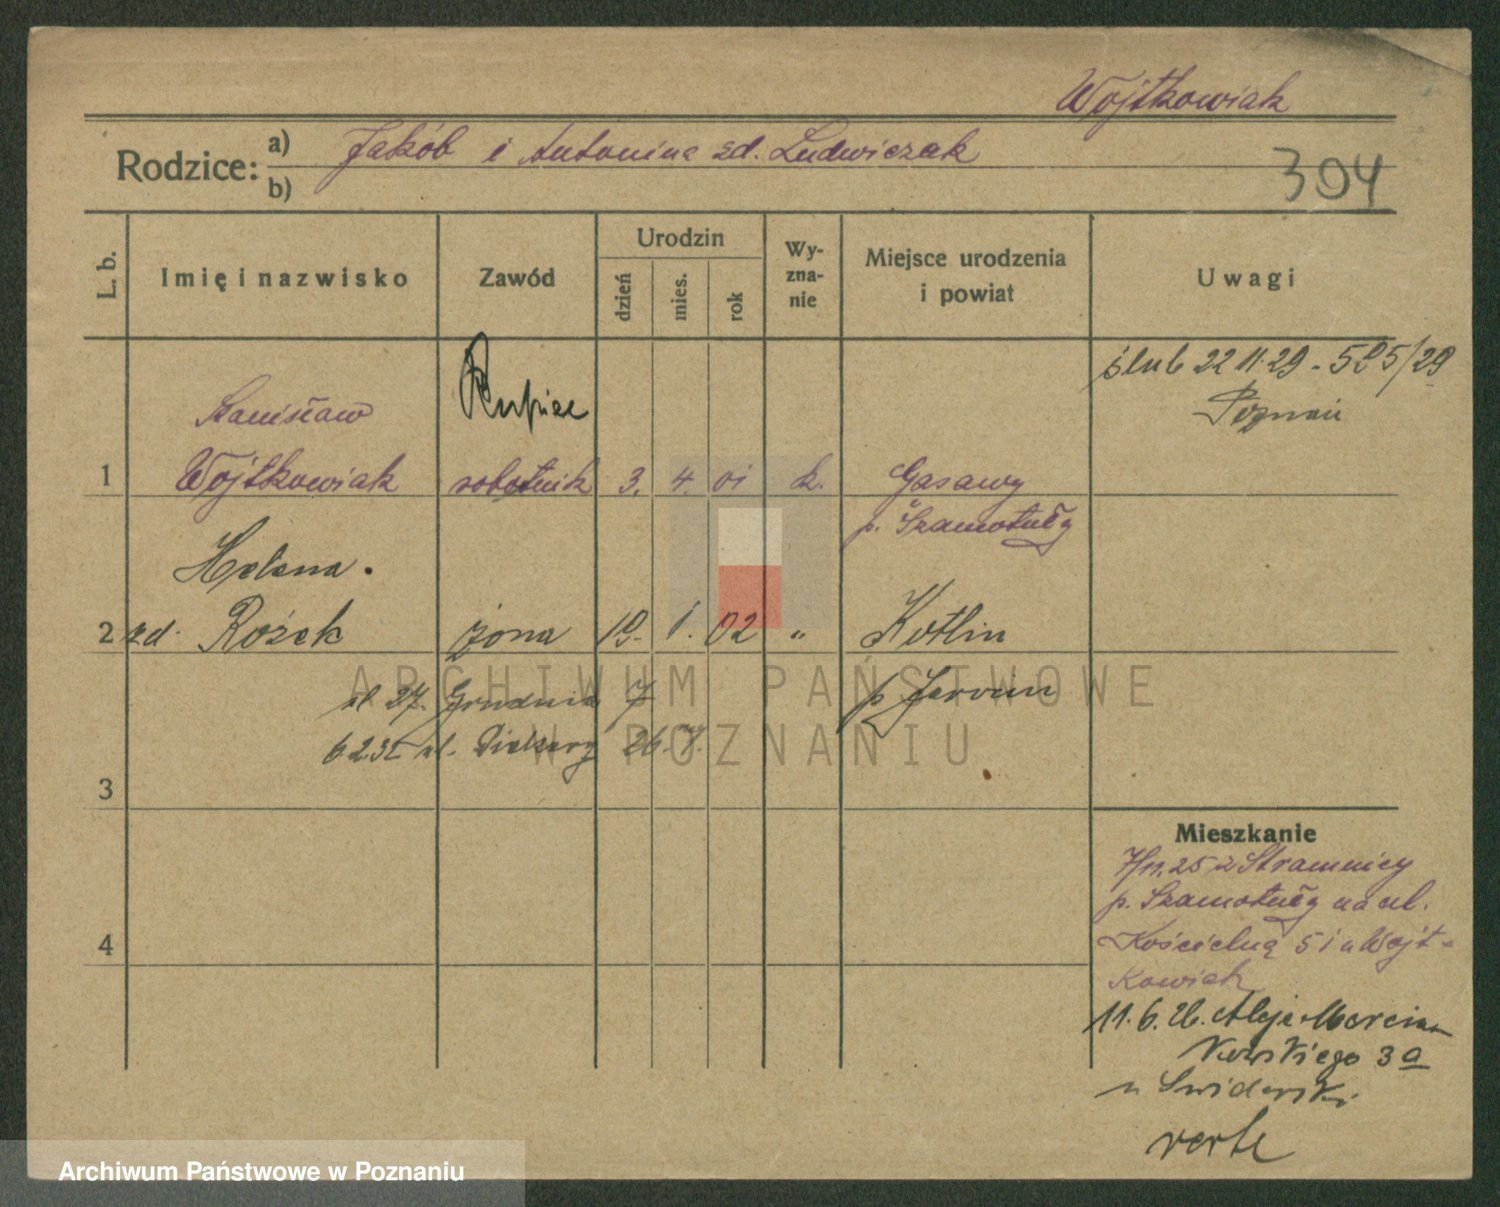 Wojtkowiak
Rodzice:
a) Jakób i Antonina zd. Ludwiczak
b)
304
L. b.
Imię i nazwisko
Zawód
Urodzin
dzień
mies.
rok
Wy-
zna-
nie
Miejsce urodzenia
i powiat
Uwagi
ślub 22 11 29 - 595/29
Poznań
Kupiec
Stanisław
1 Wojtkowiak robotnik 3. 4. 01 k.
Gasawy
p. Szamotuły
Helena
2 zd. Rożek żona 19. 1. 02 "
Kotlin
p Jarocin
ul 27. Grudnia 7
6 2 32 ul. Piekary 26. 7.
3
4
Mieszkanie
7/11.25 z Stramnicy
p. Szamotuły na ul.
Kościelną 51 u Wojt-
kowiak
11.6.26. Aleje Marcin
kowskiego 3a
u Swiderski
verte
ARCHIWUM PAŃSTWOWE
W POZNANIU
Archiwum Państwowe w Poznaniu